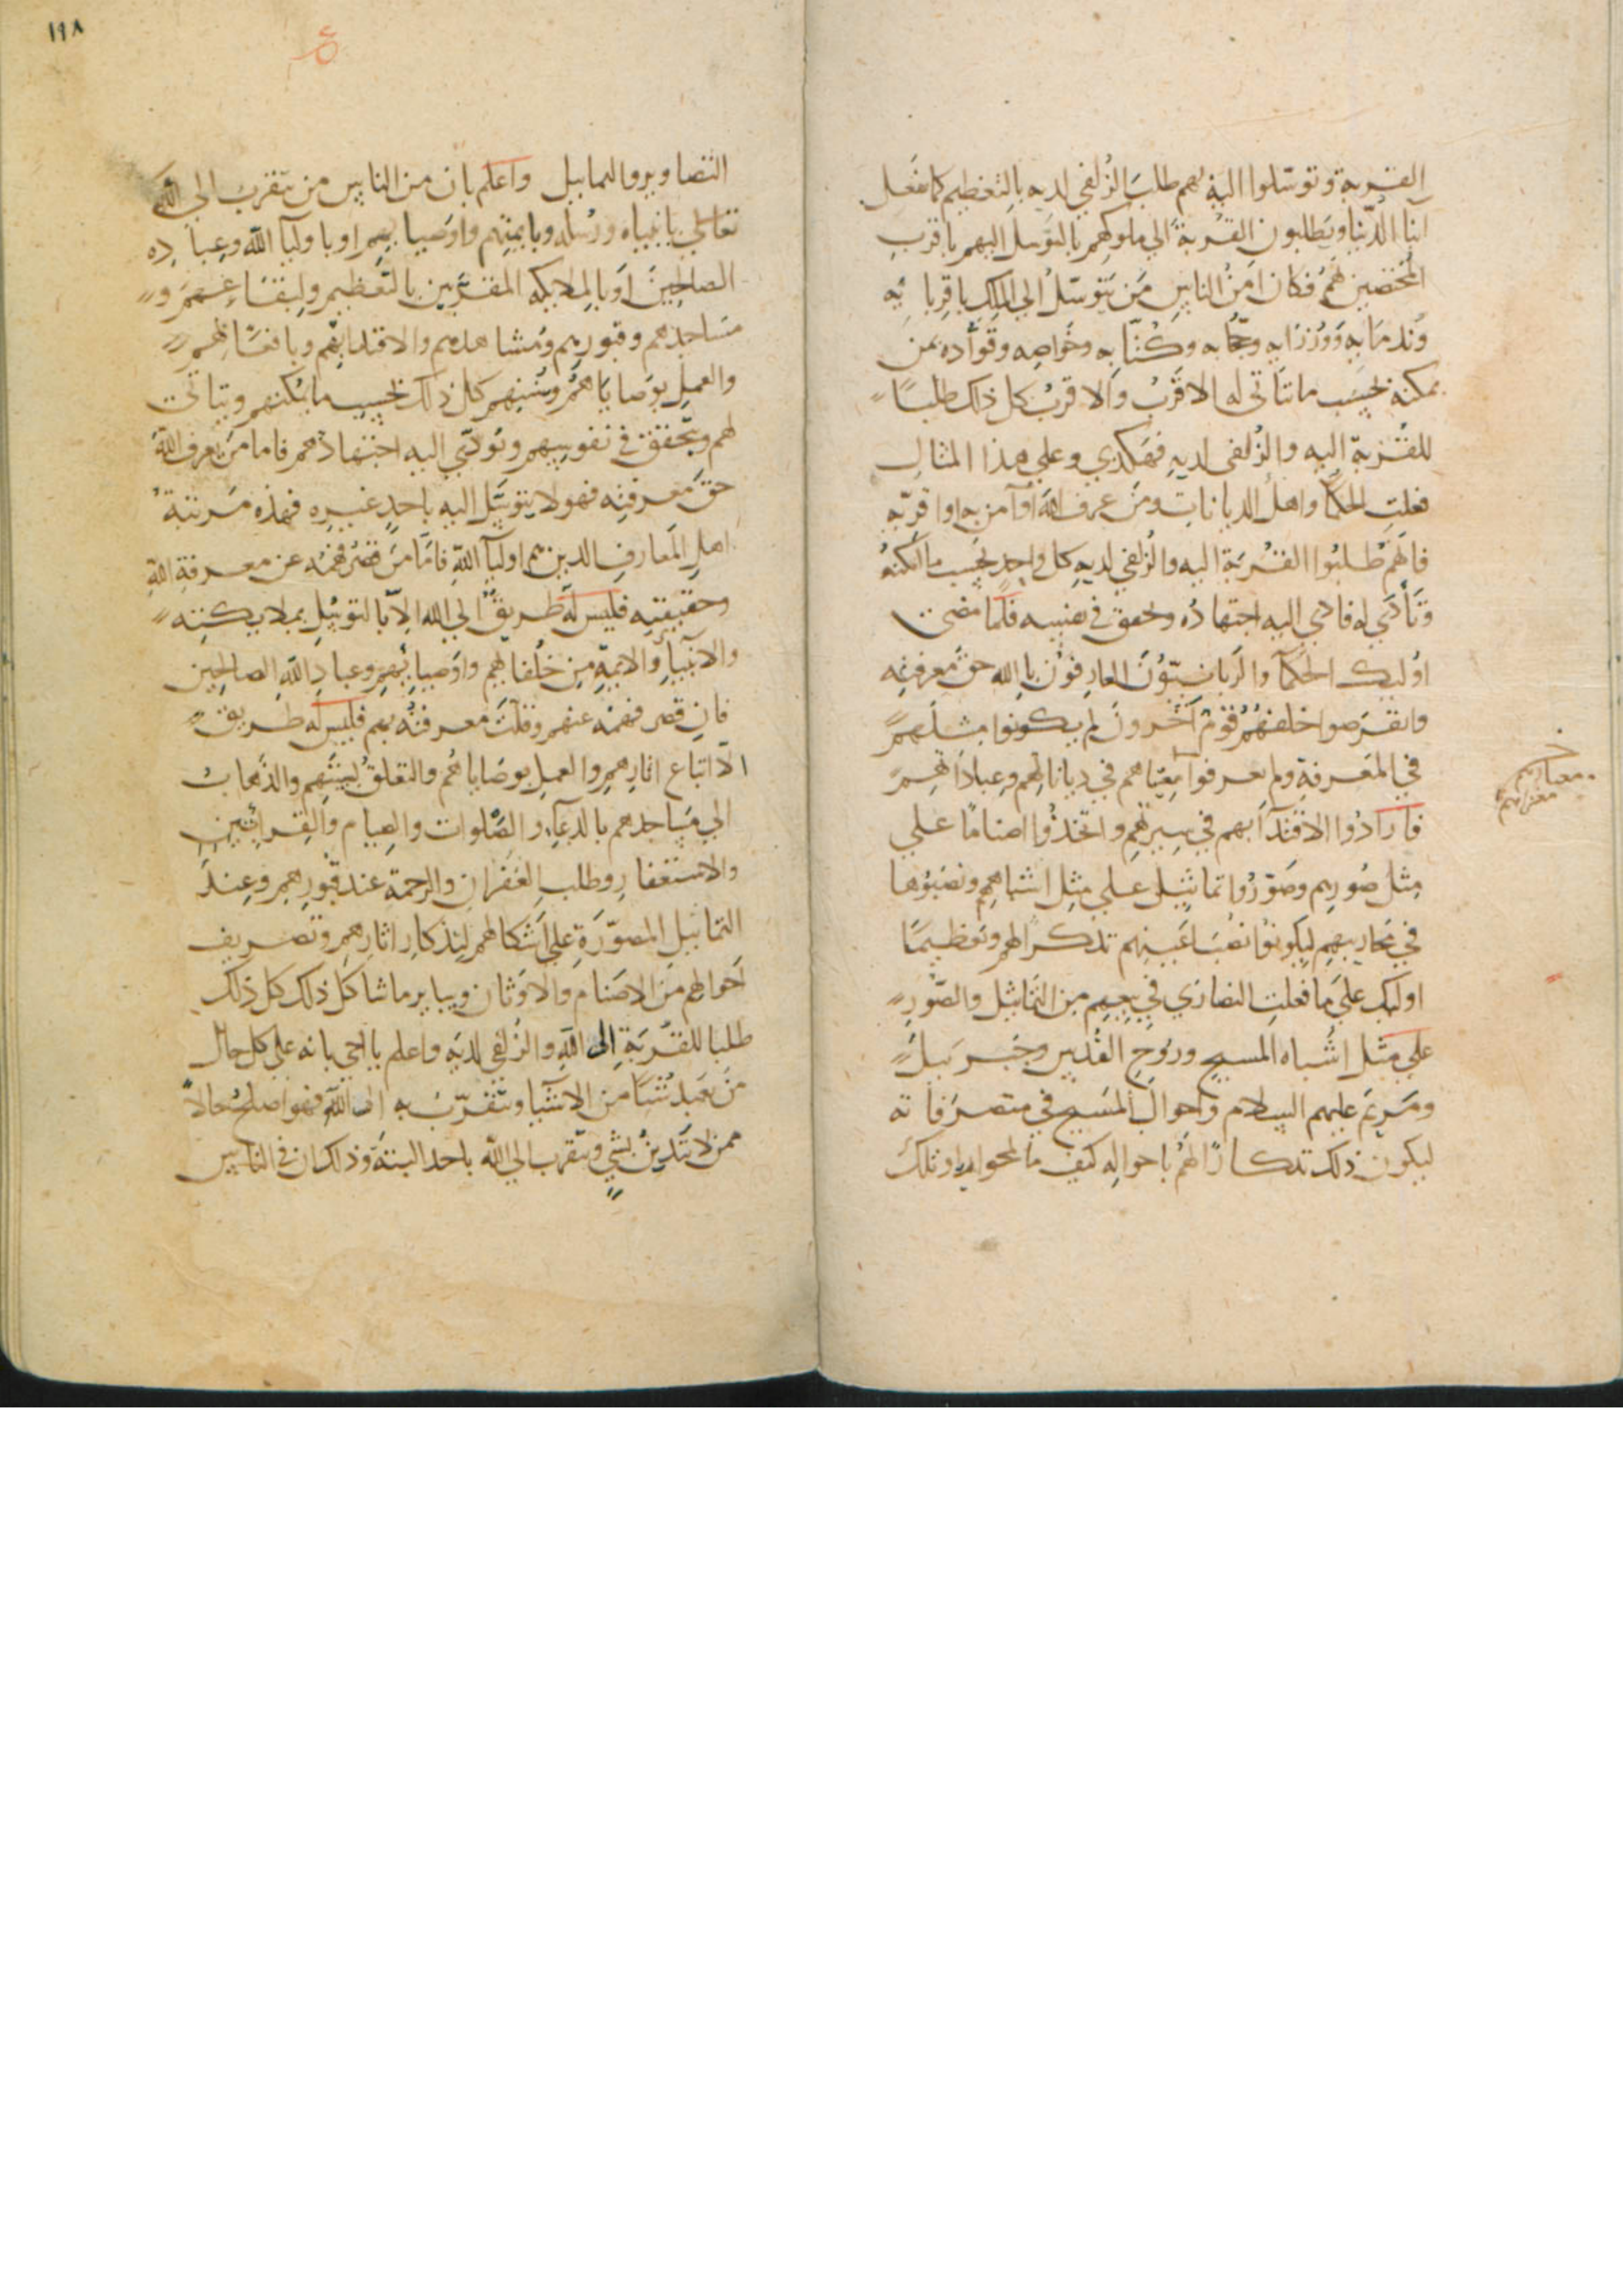 القربة وتوسّلوا اليه بهم طلبَ الزُلفى لديه بالتعظيم كما فعل
ابنا الدُنيا ويَطلبون القُربةَ الى ملوكِهم بالتوسّل اليهم باقربِ
المُختصّين بهم فكان مِنَ الناسِ مَن يَتوسّلُ الى الملِك باقربائِه
وَنُدمائِه وَوُزَرَائِه وحُجّابه وكُتّابِه وخَواصِه وقوّاده بمن
يمكنه بحسَبِ ما يتأتى له الاقربُ والاقربُ كل ذلك طلباً
للقُربةِ اليه والزُلفى لديهِ فهكذى وعلى هذا المثالِ
فعلتِ الحكما واهلُ الدياناتِ ومَن عرف الله وآمن به واقرّ به
فانهم طلبُوا القُربَةَ اليه والزُلفى لديهِ كل واحِدٍ بحَسب ما امكنهُ
وتَأتى له فادى اليه اجتهادُه وتحقق في نفسِه فلمّا مضى
اوليك الحكمآ والرَبانيّونَ العارِفونَ بالله حق معرفتِه
وانقرضوا خلفَهُم قَومٌ آخَرونَ لم يكونوا مثلَهم
في المَعرفةِ ولم يعرفوا مغزاهم في دياناتِهم وعِباداتِهم
معناهم
مغزاهم
فارادُوا الاقتدآ بهم في سِيرتهم واتخذُوا اصناماً على
مِثل صُورهم وصَوّرُوا تماثيل على مِثل اشباههم ونصبُوها
في محاريبهم ليكونوا نُصبَ اعينهم تذكراً لهم وتعظيماً
اوليك على ما فعلتِ النصارى في بيعِهم من التماثيل والصُّورِ
على مثل اشباه المسيح ورُوحِ القُدس وجبرَييلَ
ومَريَم عليهم السلام وأحوالَ المسَيح في متصرّفاته
ليكون ذلك تذكاراً لهُم باحوالِه كيف ما نحوا او تلك
١١٨
التصاوير والتماثيل واعلم بان من الناس من يتقربُ الى اللهِ
تعالى بانبياه ورُسله وبايمتهم واوصيايهم او باوليآ الله وعبادِه
الصالحينَ او بالملايكه المقرّبين بالتعظيم و
مسَاجدهم وقبورهم ومُشاهدهم والاقتدا بهم وبافعَالهم
والعملِ بوَصايَاهُم وسُننهم كل ذلك بحسبِ ما يمكنهم ويتأتى
لهم ويتحقق في نفوسهم ويؤدي اليه اجتهادهم فاما من يَعرف اللهَ
حقّ معرفتِه فهو لا يتوسّل اليه باحدٍ غيرِه فهذه مَرتبةُ
اهلِ المَعارفِ الذين هم اوليآ اللهِ فامّا مَن قصُرَ فهمُه عن معرفةِ اللهِ
وحقيقتِه فليس له طريقٌ الى الله الاّ بالتوسُل بملايكتِه
والانبيآءِ والايمةِ من خلفايهم واوَصيائِهم وعبادِ اللهِ الصالحين
فان قصر فهمُه عنهم وقلّت معرفتُه بهم فليس له طريق
الا اتباع اثارهم والعمل بوصاياهُم والتعلقُ بسننهم والذهابُ
الى مَساجدهم بالدعآءِ والصَّلوات والصِيام والقرابين
والاستغفارِ وطلبِ الغفرانِ والرحمة عند قبورِهم وعِندَ
التماثيل المصوّرَةِ على اَشكالهم لِتذكارِ اثارِهم وتصريفِ
اَحوالهم منَ الاصنام والاَوثان وساير ما شاكل ذلك كل ذلك
طلباً للقُربةِ الى اللهِ والزُلفى لديه واعلم يا اخى بانه على كل حال
من عَبدَ شيئاً من الاشيا ويتقرّبُ به الى اللهِ فهو اصلحُ حالاً
ممن لا يَدينُ بشيٍ ويَتقرب الى الله باحد البتةَ وذلك ان في الناس